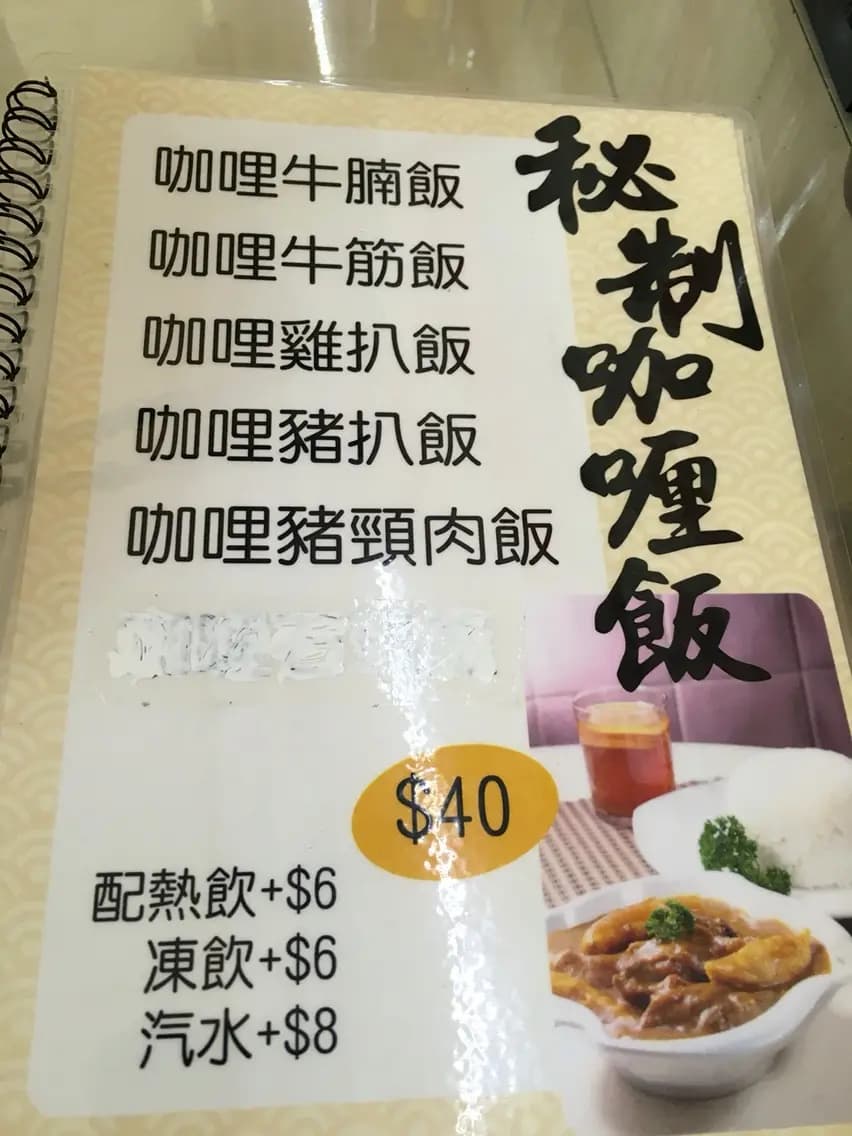 秘制咖喱飯
咖哩牛腩飯
咖哩牛筋飯
咖哩雞扒飯
咖哩豬扒飯
咖哩豬頸肉飯
$40
配熱飲+$6
凍飲+$6
汽水+$8